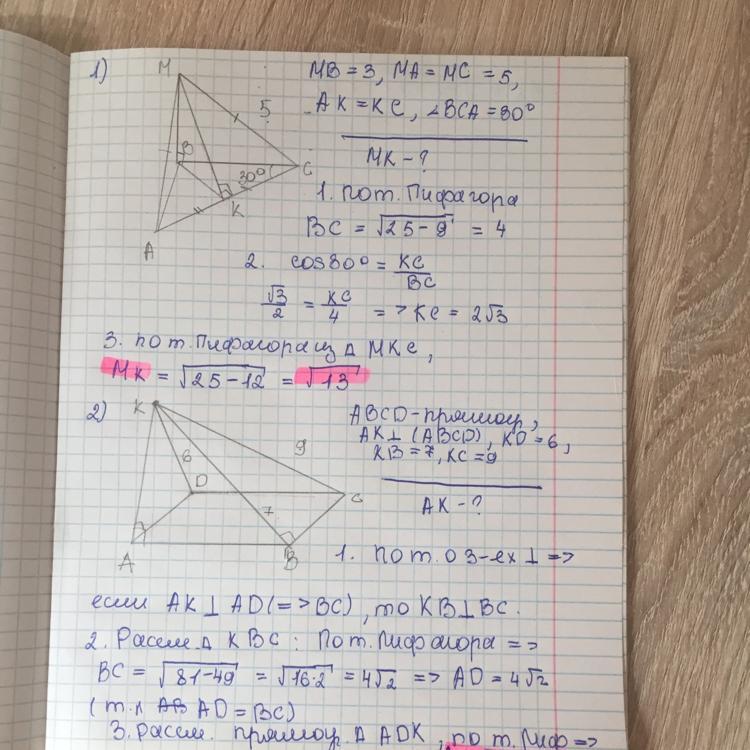 1)
M
5
B
30°
C
K
A
MB = 3, MA = MC = 5,
AK = KC, ∠BCA = 30°
MK - ?
1. по т. Пифагора
BC = √25-9 = 4
2. cos30° = KC/BC
√3/2 = KC/4 => KC = 2√3
3. по т. Пифагора из Δ MKC,
MK = √25-12 = √13
2)
K
6
9
D
7
C
A
B
ABCD - прямоуг,
AK⊥(ABCD), KD = 6,
KB = 7, KC = 9
AK - ?
1. по т. о 3-ех ⊥ =>
если AK⊥AD(=>BC), то KB⊥BC.
2. Рассм Δ KBC: По т. Пифагора =>
BC = √81-49 = √16·2 = 4√2 => AD = 4√2
(т.к AB AD = BC)
3. Рассм. прямоуг. Δ ADK, по т. Пиф =>